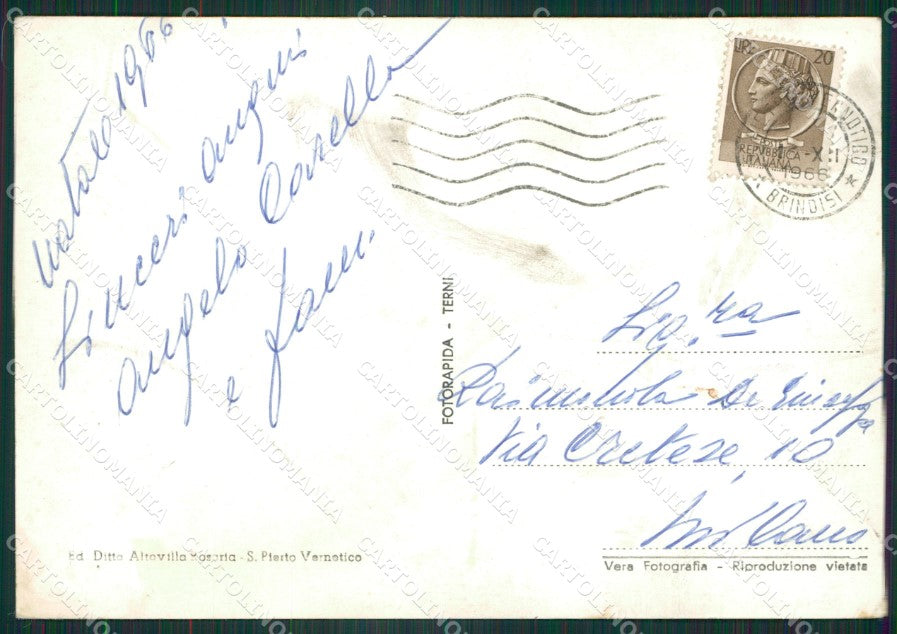 Natale 1966
Sinceri auguri
Angelo Carella
e fam.
LIRE 20
REPUBBLICA
ITALIANA
-XII
1966
* BRINDISI *
Sig.ra
De Giuseppe
Via Cretese, 10
Milano
FOTORAPIDA - TERNI
Ed. Ditta Altavilla Rosaria - S. Pietro Vernotico
Vera Fotografia - Riproduzione vietata
CARTOLINOMANIA